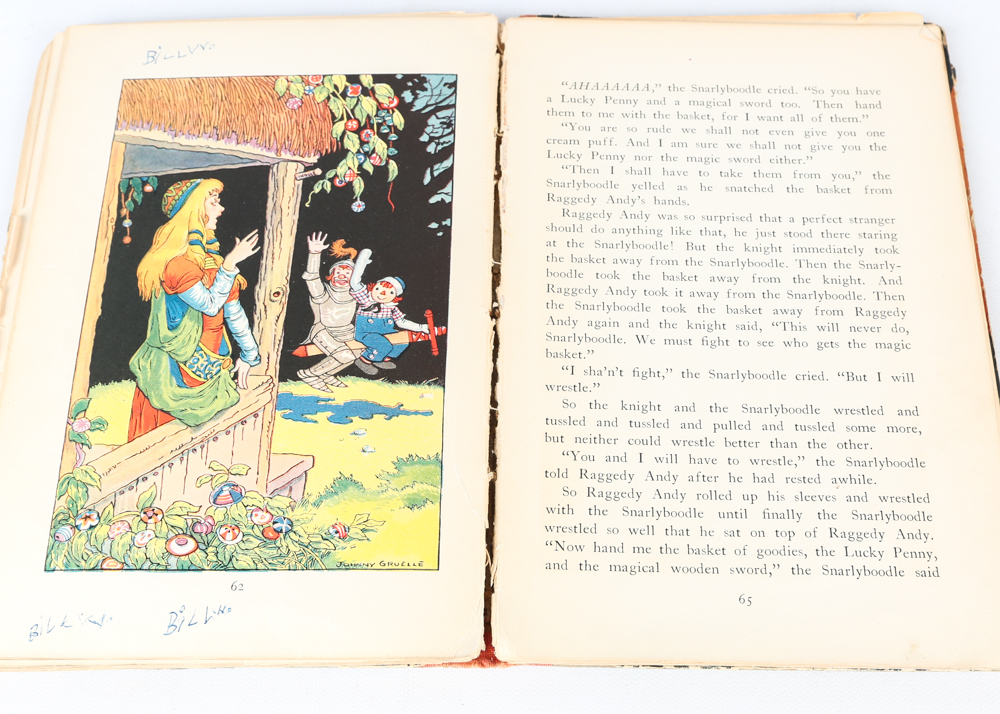 BILLW.
JOHNNY GRUELLE
62
BILLW.
BILLW.
“AHAAAAAA,” the Snarlyboodle cried. “So you have
a Lucky Penny and a magical sword too. Then hand
them to me with the basket, for I want all of them.”
“You are so rude we shall not even give you one
cream puff. And I am sure we shall not give you the
Lucky Penny nor the magic sword either.”
“Then I shall have to take them from you,” the
Snarlyboodle yelled as he snatched the basket from
Raggedy Andy’s hands.
Raggedy Andy was so surprised that a perfect stranger
should do anything like that, he just stood there staring
at the Snarlyboodle! But the knight immediately took
the basket away from the Snarlyboodle. Then the Snarly-
boodle took the basket away from the knight. And
Raggedy Andy took it away from the Snarlyboodle. Then
the Snarlyboodle took the basket away from Raggedy
Andy again and the knight said, “This will never do,
Snarlyboodle. We must fight to see who gets the magic
basket.”
“I sha’n’t fight,” the Snarlyboodle cried. “But I will
wrestle.”
So the knight and the Snarlyboodle wrestled and
tussled and tussled and pulled and tussled some more,
but neither could wrestle better than the other.
“You and I will have to wrestle,” the Snarlyboodle
told Raggedy Andy after he had rested awhile.
So Raggedy Andy rolled up his sleeves and wrestled
with the Snarlyboodle until finally the Snarlyboodle
wrestled so well that he sat on top of Raggedy Andy.
“Now hand me the basket of goodies, the Lucky Penny,
and the magical wooden sword,” the Snarlyboodle said
65